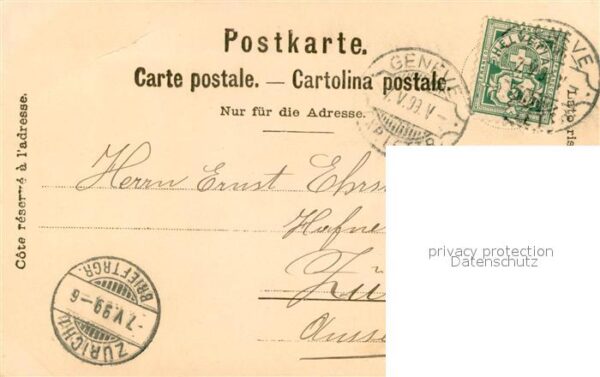 Postkarte.
Carte postale. — Cartolina postale.
Nur für die Adresse.
Côte réservé à l'adresse.
GENÈVE
V.99.V
HELVETIA
Herrn Ernst Ehrs
Hafne
Zü
Ausse
ZÜRICH
7.V.99-6
BRIEFTRGR.
privacy protection
Datenschutz